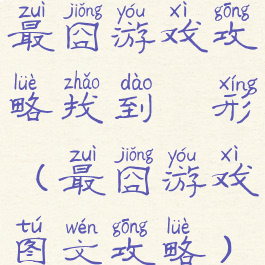 zuì jiǒng yóu xì gōng
最囧游戏攻
lüè zhǎo dào xíng
略找到 形
zuì jiǒng yóu xì
（最囧游戏
tú wén gōng lüè
图文攻略）